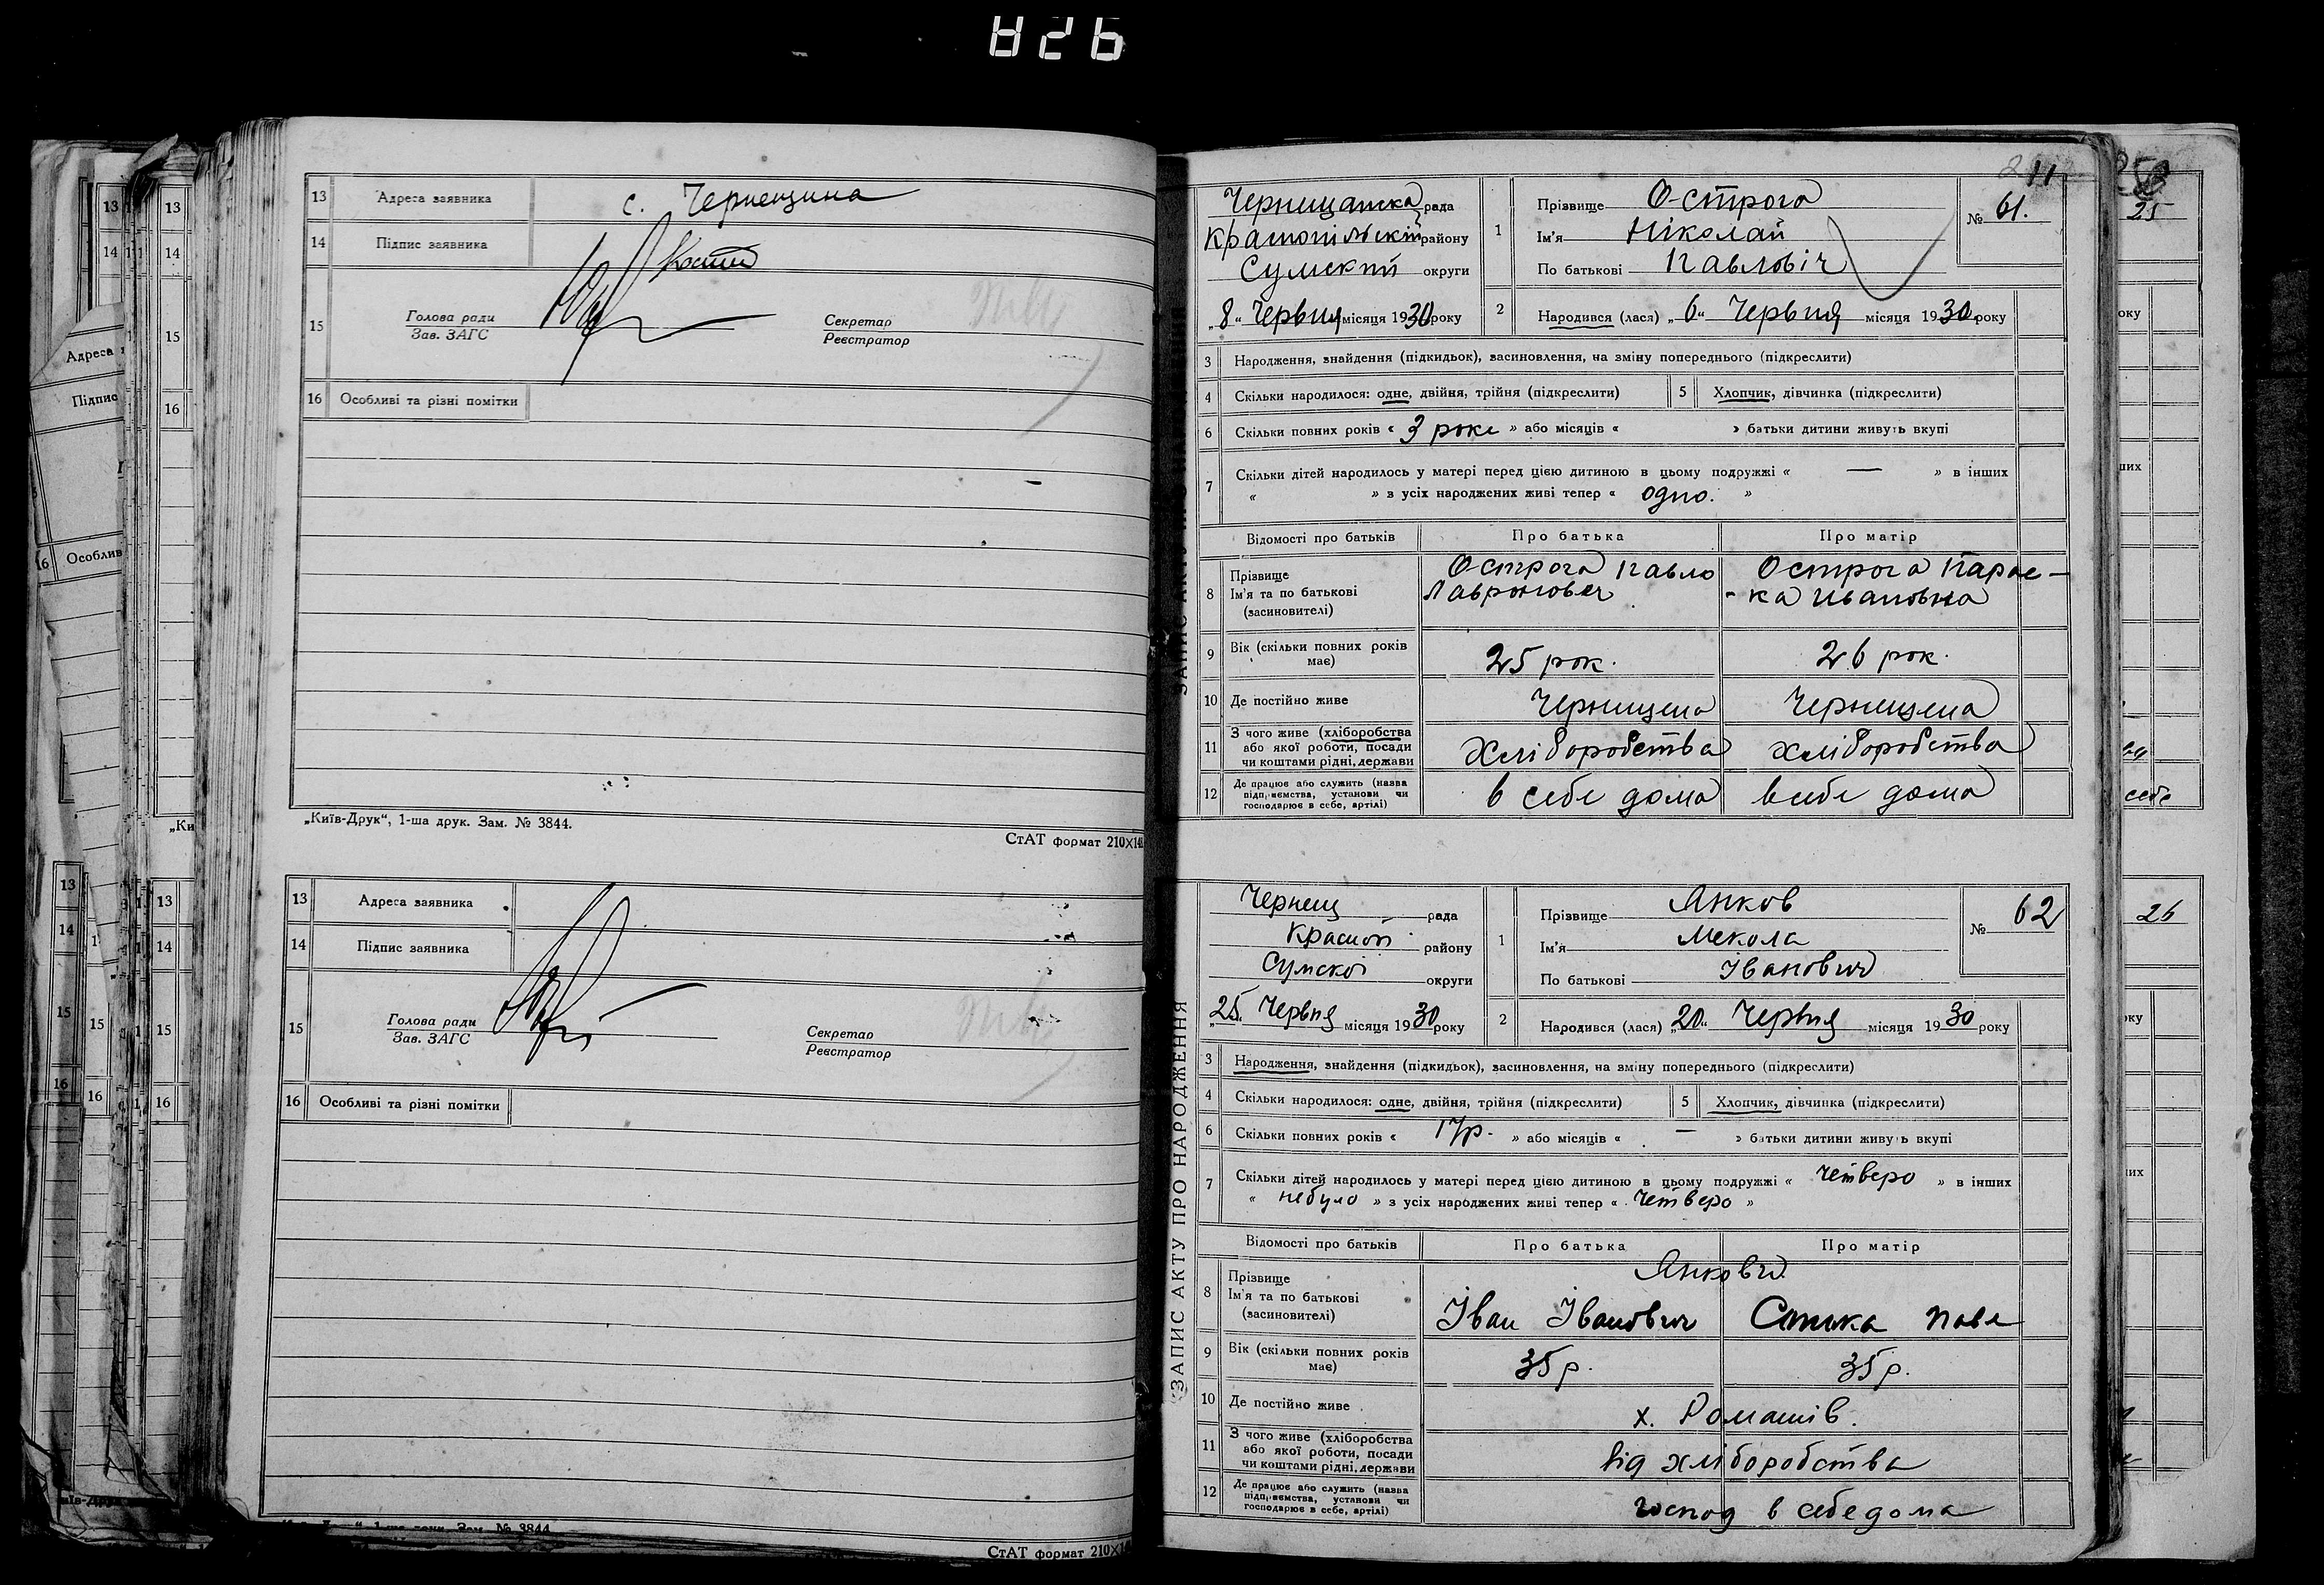 826
13 Адреса заявника с. Чернещина
14 Підпис заявника
15 Голова ради
Зав. ЗАГС
Секретар
Реєстратор
16 Особливі та різні помітки
„Київ-Друк“, 1-ша друк. Зам. № 3844.
СтАТ формат 210×14
13 Адреса заявника
14 Підпис заявника
15 Голова ради
Зав. ЗАГС
Секретар
Реєстратор
16 Особливі та різні помітки
СтАТ формат 210×1
11
Чернещанска рада
Краснопільскій району
Сумский округи
„8“ Червня місяця 1930 року
1 Прізвище Острога
Ім'я Ніколай
По батькові Павловіч
№ 61.
2 Народився (лася) „6“ Червня місяця 1930. року
3 Народження, знайдення (підкидьок), засиновлення, на зміну попереднього (підкреслити)
4 Скільки народилося: одне, двійня, трійня (підкреслити) 5 Хлопчик, дівчинка (підкреслити)
6 Скільки повних років « 3 роки » або місяців « » батьки дитини живуть вкупі
7 Скільки дітей народилось у матері перед цією дитиною в цьому подружжі « — » в інших
« » з усіх народжених живі тепер « одно. »
Відомості про батьків Про батька Про матір
8 Прізвище
Ім'я та по батькові
(засиновителі)
Острога Павло
Острога Парас-
-ка Ивановна
9 Вік (скільки повних років має) 25 рок. 26 рок.
10 Де постійно живе Чернищена Чернещена
11 З чого живе (хліборобства
або якої роботи, посади
чи коштами рідні, держави
Хліборобства хліборобства
12 Де працює або служить (назва
підприємства, установи чи
господарює в себе, артілі)
в себе дома в себе дома
ЗАПИС АКТУ ПРО НАРОДЖЕННЯ
Чернещ рада
Красноп району
Сумскої округи
„25. Червня місяця 1930 року
1 Прізвище Янков
Ім'я Мекола
По батькові Іванович
№ 62
2 Народився (лася) „20“ Червня місяця 1930 року
3 Народження, знайдення (підкидьок), засиновлення, на зміну попереднього (підкреслити)
4 Скільки народилося: одне, двійня, трійня (підкреслити) 5 Хлопчик, дівчинка (підкреслити)
6 Скільки повних років « 17р. » або місяців « — » батьки дитини живуть вкупі
7 Скільки дітей народилось у матері перед цією дитиною в цьому подружжі « четверо » в інших
« небуло » з усіх народжених живі тепер « Четверо »
Відомості про батьків Про батька Про матір
8 Прізвище
Ім'я та по батькові
(засиновителі)
Іван Іванович
9 Вік (скільки повних років має) 35 р. 35 р.
10 Де постійно живе х.
11 З чого живе (хліборобства
або якої роботи, посади
чи коштами рідні, держави
від хліборобства
12 Де працює або служить (назва
підприємства, установи чи
господарює в себе, артілі)
господ в себе дома
25
26